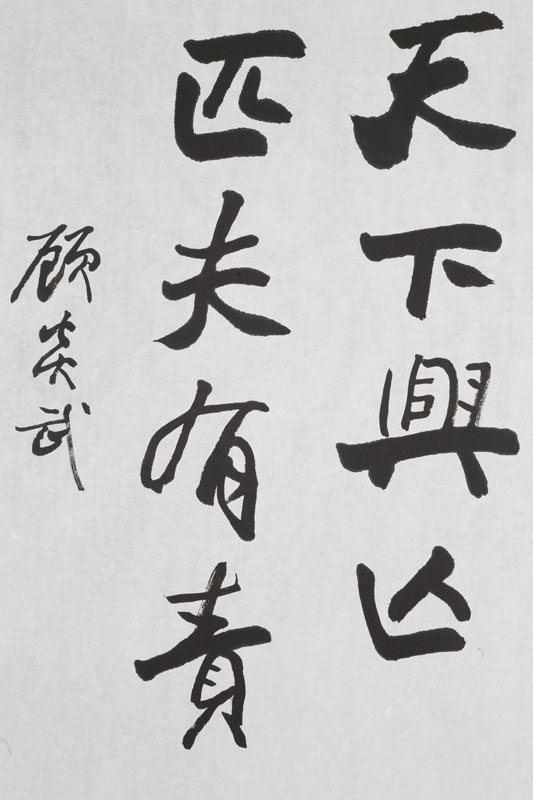 天下興亾
匹夫有責
顧炎武